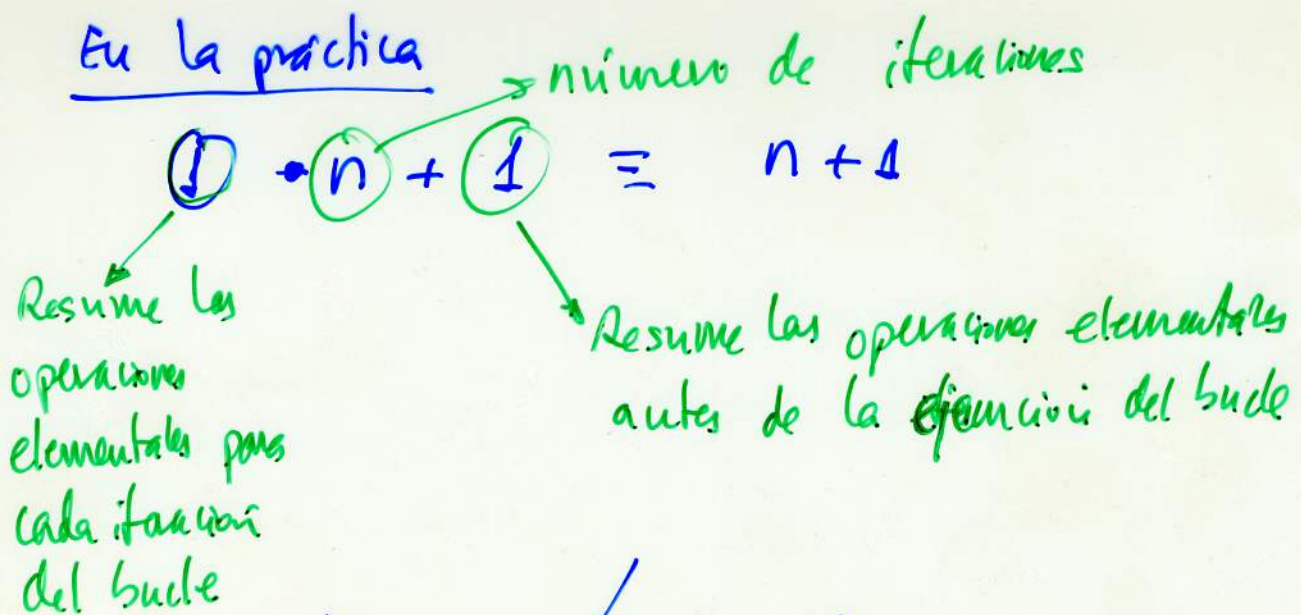 En la práctica
número de iteraciones
1 · n + 1 ≡ n + 1
Resume las
operaciones
elementales para
cada iteración
del bucle
Resume las operaciones elementales
antes de la ejecución del bucle